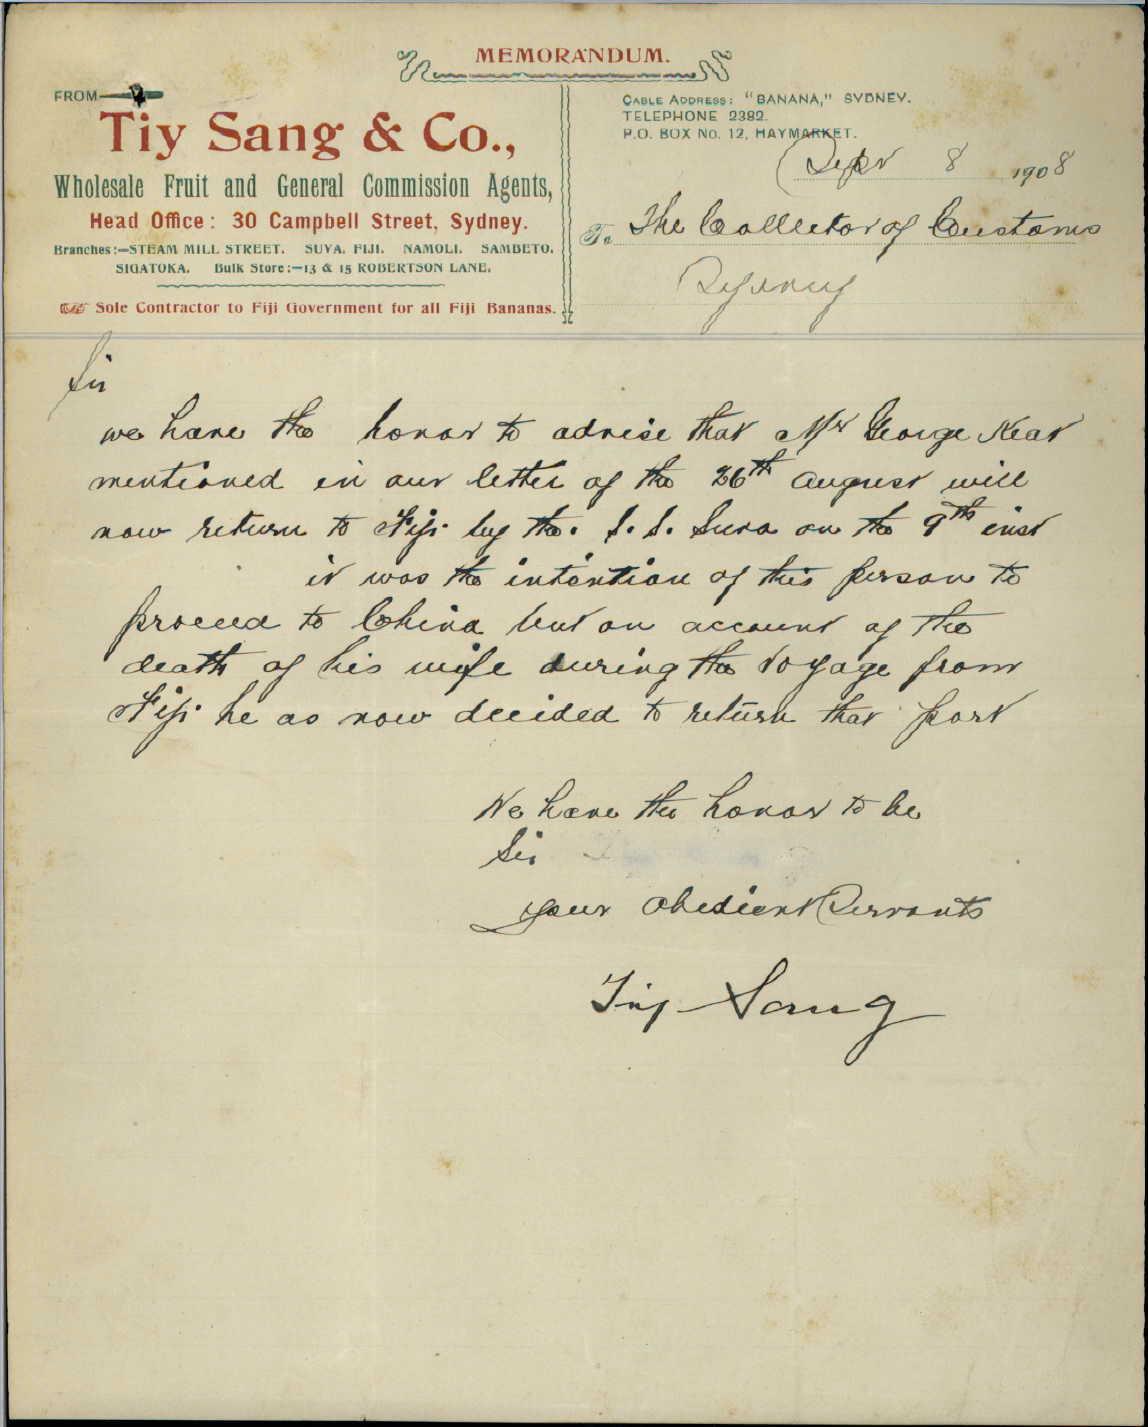 MEMORANDUM.
FROM
Tiy Sang & Co.,
Wholesale Fruit and General Commission Agents,
Head Office: 30 Campbell Street, Sydney.
Branches:—STEAM MILL STREET. SUVA, FIJI. NAMOLI. SAMBETO.
SIGATOKA. Bulk Store:—13 & 15 ROBERTSON LANE.
Sole Contractor to Fiji Government for all Fiji Bananas.
CABLE ADDRESS: "BANANA," SYDNEY.
TELEPHONE 2382.
P.O. BOX No. 12, HAYMARKET.
Sept 8 1908
To The Collector of Customs
Sydney
Sir
we have the honor to advise that Mr George Kear
mentioned in our letter of the 26th August will
now return to Fiji by the S.S. Suva on the 9th inst
it was the intention of this person to
proceed to China but on account of the
death of his wife during the voyage from
Fiji he as now decided to return that port
We have the honor to be
Sir
your obedient Servants
Tiy Sang